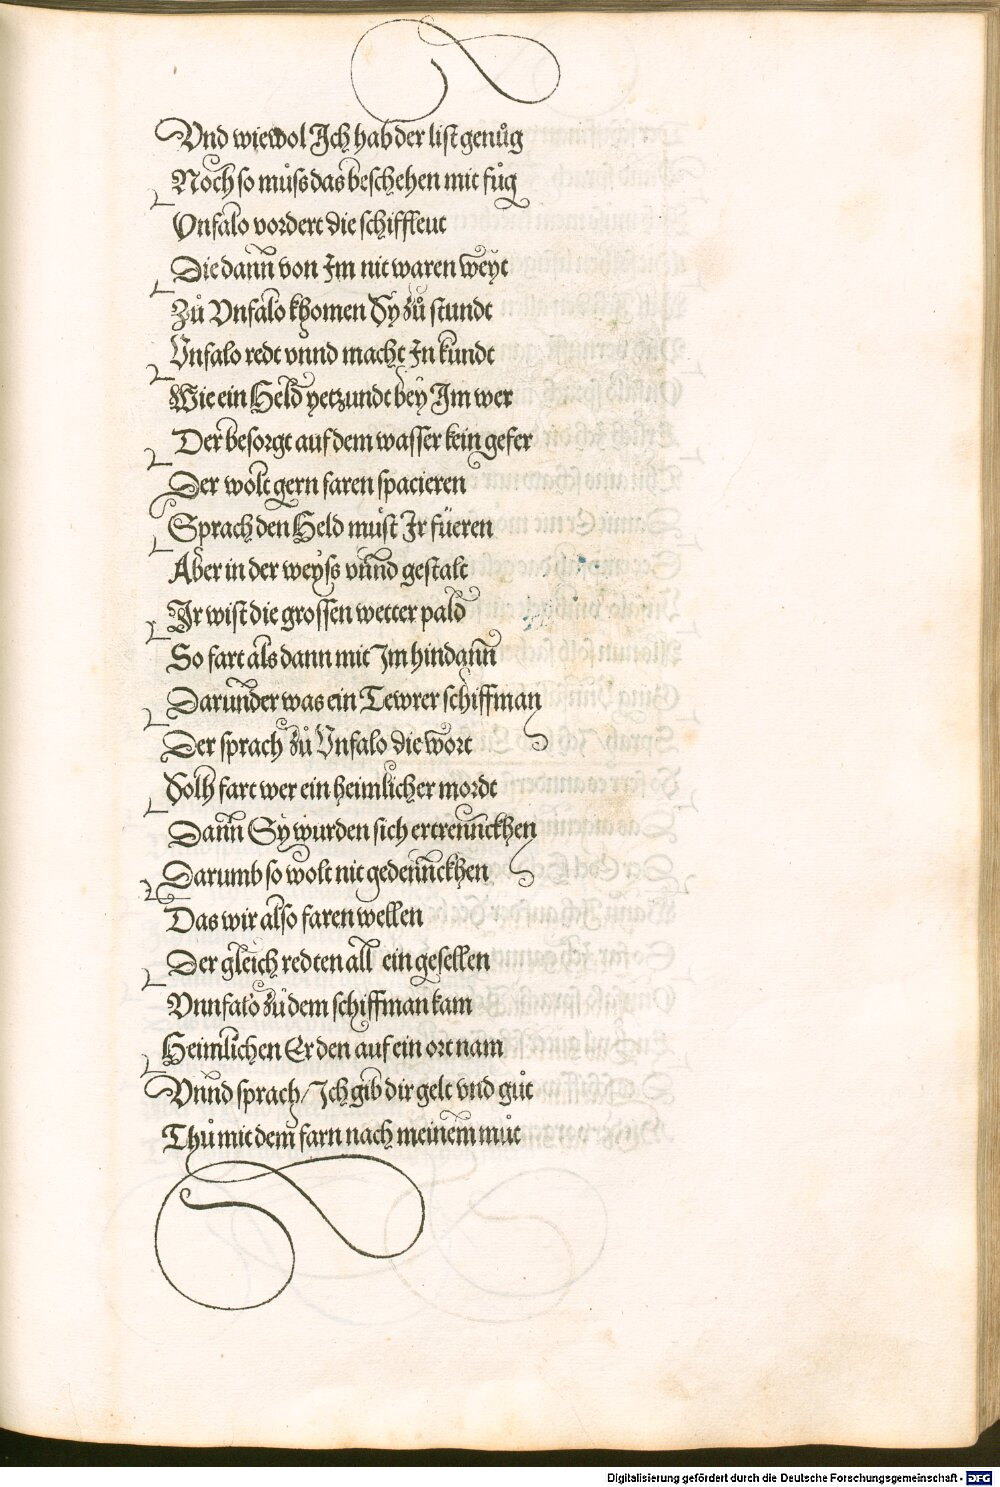 Vnd wiewol Ich hab der list genůg
Noch so můss das beschehen mit fůg
Vnfalo vordert die schiffleut
Die dann von Im nit waren weyt
Zů Vnfalo khomen Sy zů stundt
Vnfalo redt vnnd macht In kundt
Wie ein Held yetzundt bey Im wer
Der besorgt auf dem wasser kein gefer
Der wolt gern faren spacieren
Sprach den Held můst Ir füeren
Aber in der weyss vnnd gestalt
Ir wist die grossen wetter pald
So fart als dann mit Im hindann
Darunder was ein Tewrer schiffman
Der sprach zů Vnfalo die wort
Solh fart wer ein heimlicher mordt
Dann Sy wurden sich ertrennckhen
Darumb so wolt nit gedennckhen
Das wir also faren wellen
Der gleich redten all ein gesellen
Vnnfalo zů dem schiffman kam
Heimlichen Er den auf ein ort nam
Vnnd sprach / Ich gib dir gelt vnd gůt
Thů mit dem farn nach meinem můt
Digitalisierung gefördert durch die Deutsche Forschungsgemeinschaft - DFG